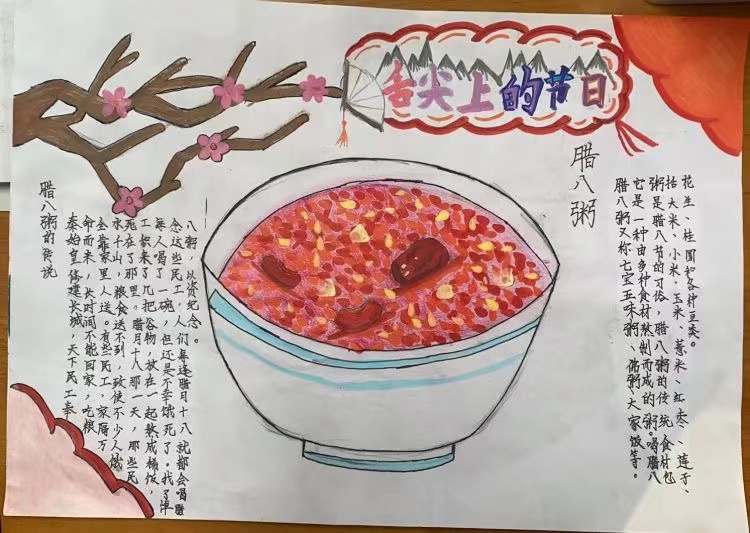 舌尖上的节日
腊八粥的传说
秦始皇修建长城，天下民工奉
命而来，长时间不能回家，吃粮
全靠家里人送。有些民工，家隔万
水千山，粮食送不到，致使不少人饿
死在了那里。腊月十八那一天，那些民
工积来了几把谷物，放在一起熬成稀饭，
每人喝了一碗，但还是不幸饿死了。为了悼
念这些民工，人们每逢腊月十八就都会喝腊
八粥，以资纪念。
腊八粥
腊八粥又称七宝五味粥、佛粥、大家饭等。
它是一种由多种食材熬制而成的粥。喝腊八
粥是腊八节的习俗，腊八粥的传统食材包
括大米、小米、玉米、薏米、红枣、莲子、
花生、桂圆和各种豆类。